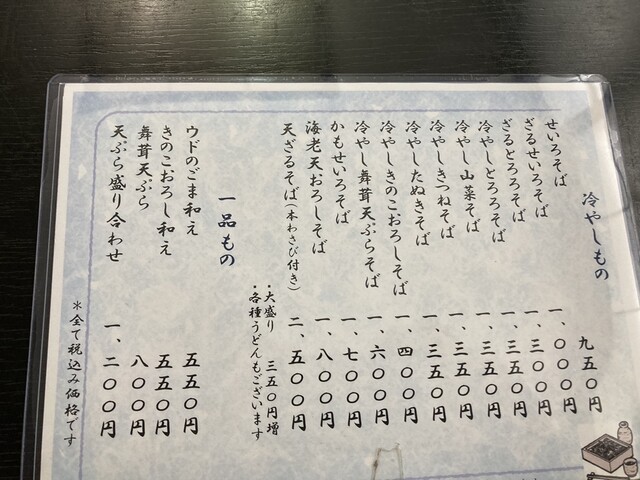 冷やしもの
せいろそば 九五〇円
ざるせいろそば 一、〇〇〇円
ざるとろろそば 一、三〇〇円
冷やしとろろそば 一、三五〇円
冷やし山菜そば 一、三五〇円
冷やしきつねそば 一、三五〇円
冷やしたぬきそば 一、三五〇円
冷やしきのこおろしそば 一、四〇〇円
冷やし舞茸天ぷらそば 一、六〇〇円
かもせいろそば 一、七〇〇円
海老天おろしそば 一、八〇〇円
天ざるそば(本わさび付き) 二、五〇〇円
・大盛り 三五〇円増
・各種うどんもございます
一品もの
ウドのごま和え 五五〇円
きのこおろし和え 五五〇円
舞茸天ぷら 八〇〇円
天ぷら盛り合わせ 一、二〇〇円
＊全て税込み価格です